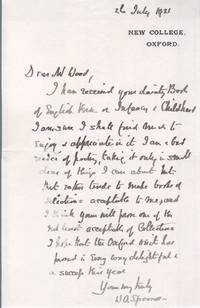 26 July 1921
NEW COLLEGE,
OXFORD.
Dear Mr Wood,
I have received your dainty Book
of English Verse on Infancy & Childhood
I am sure I shall find much to
enjoy & appreciate in it I am a bad
reader of poetry, taking it only in small
doses of things I care about but
that rather tends to make books of
selections acceptable to me, and
I think yours will prove one of the
most acceptable of Collections
I hope that the Oxford visit has
proved in every way delightful &
a success this year
Yours very truly
W A Spooner